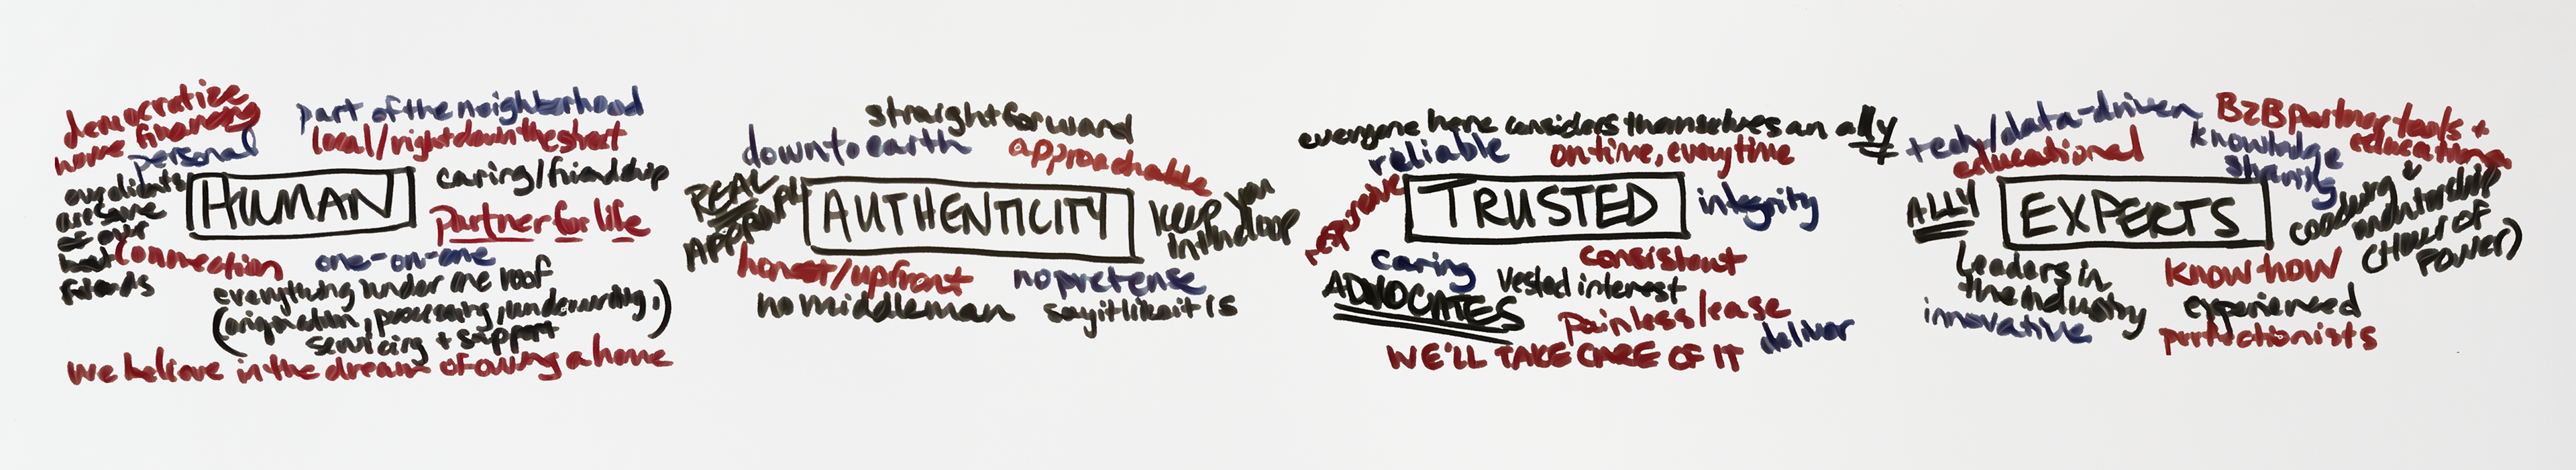 democratize
home financing
personal
part of the neighborhood
local/right down the street
our clients
are some
of our
best
friends
HUMAN
caring/friendship
partner for life
connection
one-on-one
everything under one roof
(origination, processing, underwriting,
servicing + support)
we believe in the dream of owning a home
straightforward
down to earth
approachable
REAL
APPROACH
AUTHENTICITY
keep you
in the loop
honest/upfront
no pretense
no middleman
say it like it is
everyone here considers themselves an ally
reliable
on time, every time
responsive
TRUSTED
integrity
caring
consistent
ADVOCATES
vested interest
painless/ease
deliver
WE'LL TAKE CARE OF IT
tech/data-driven
B2B partner tools +
education
educational
knowledge
sharing
ALLY
EXPERTS
coaching +
mentorship
(Hour of
Power)
leaders in
the industry
know how
innovative
experienced
perfectionists